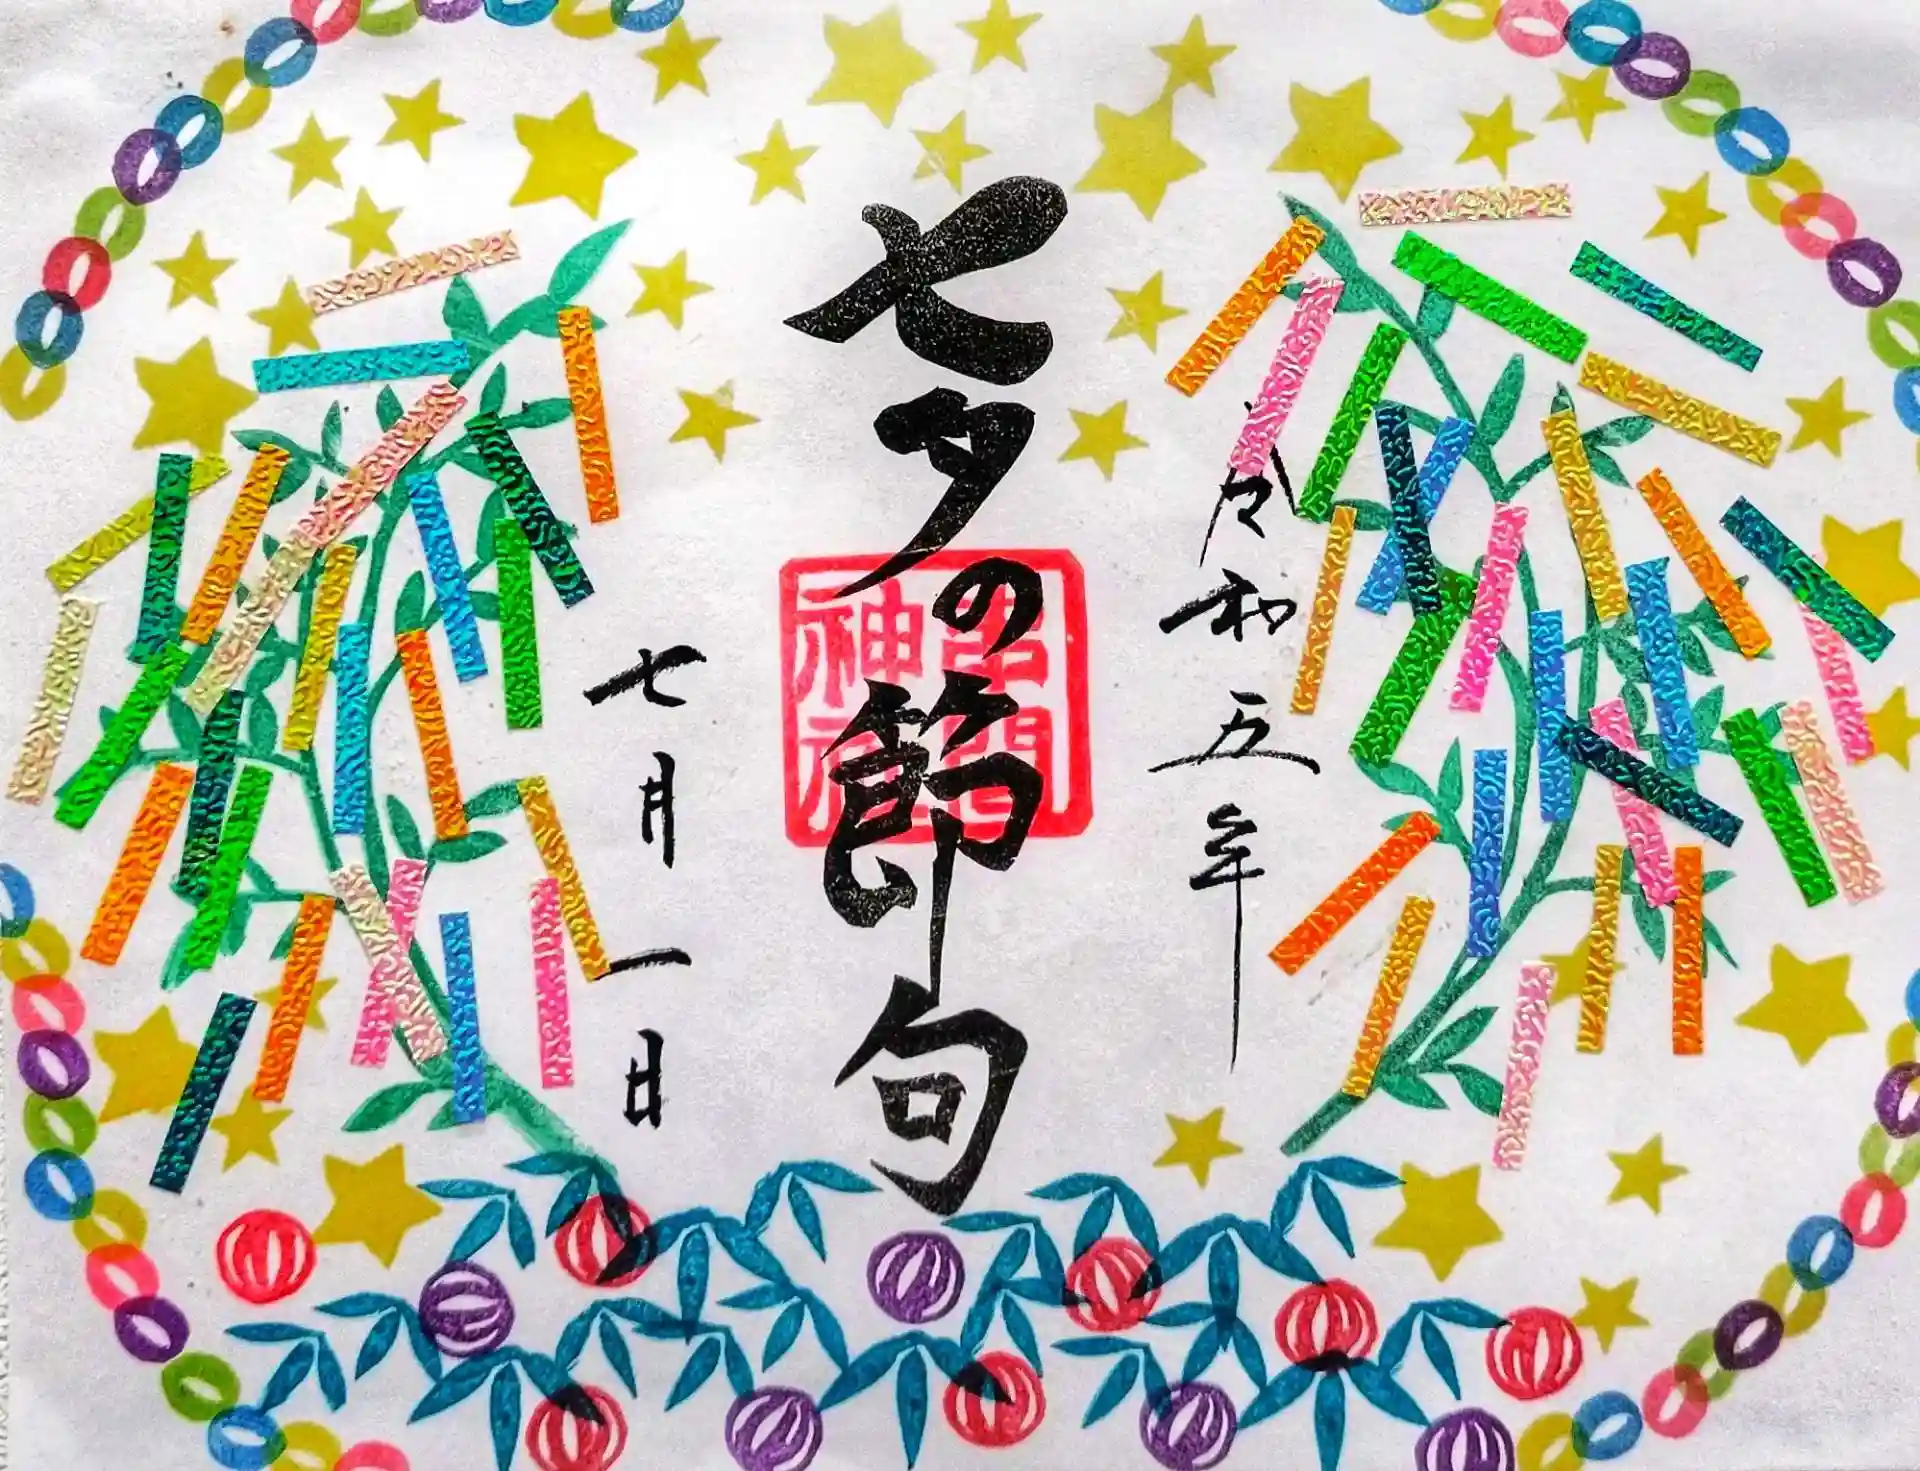 令和五年
七夕の節句
串間
神社
七月一日